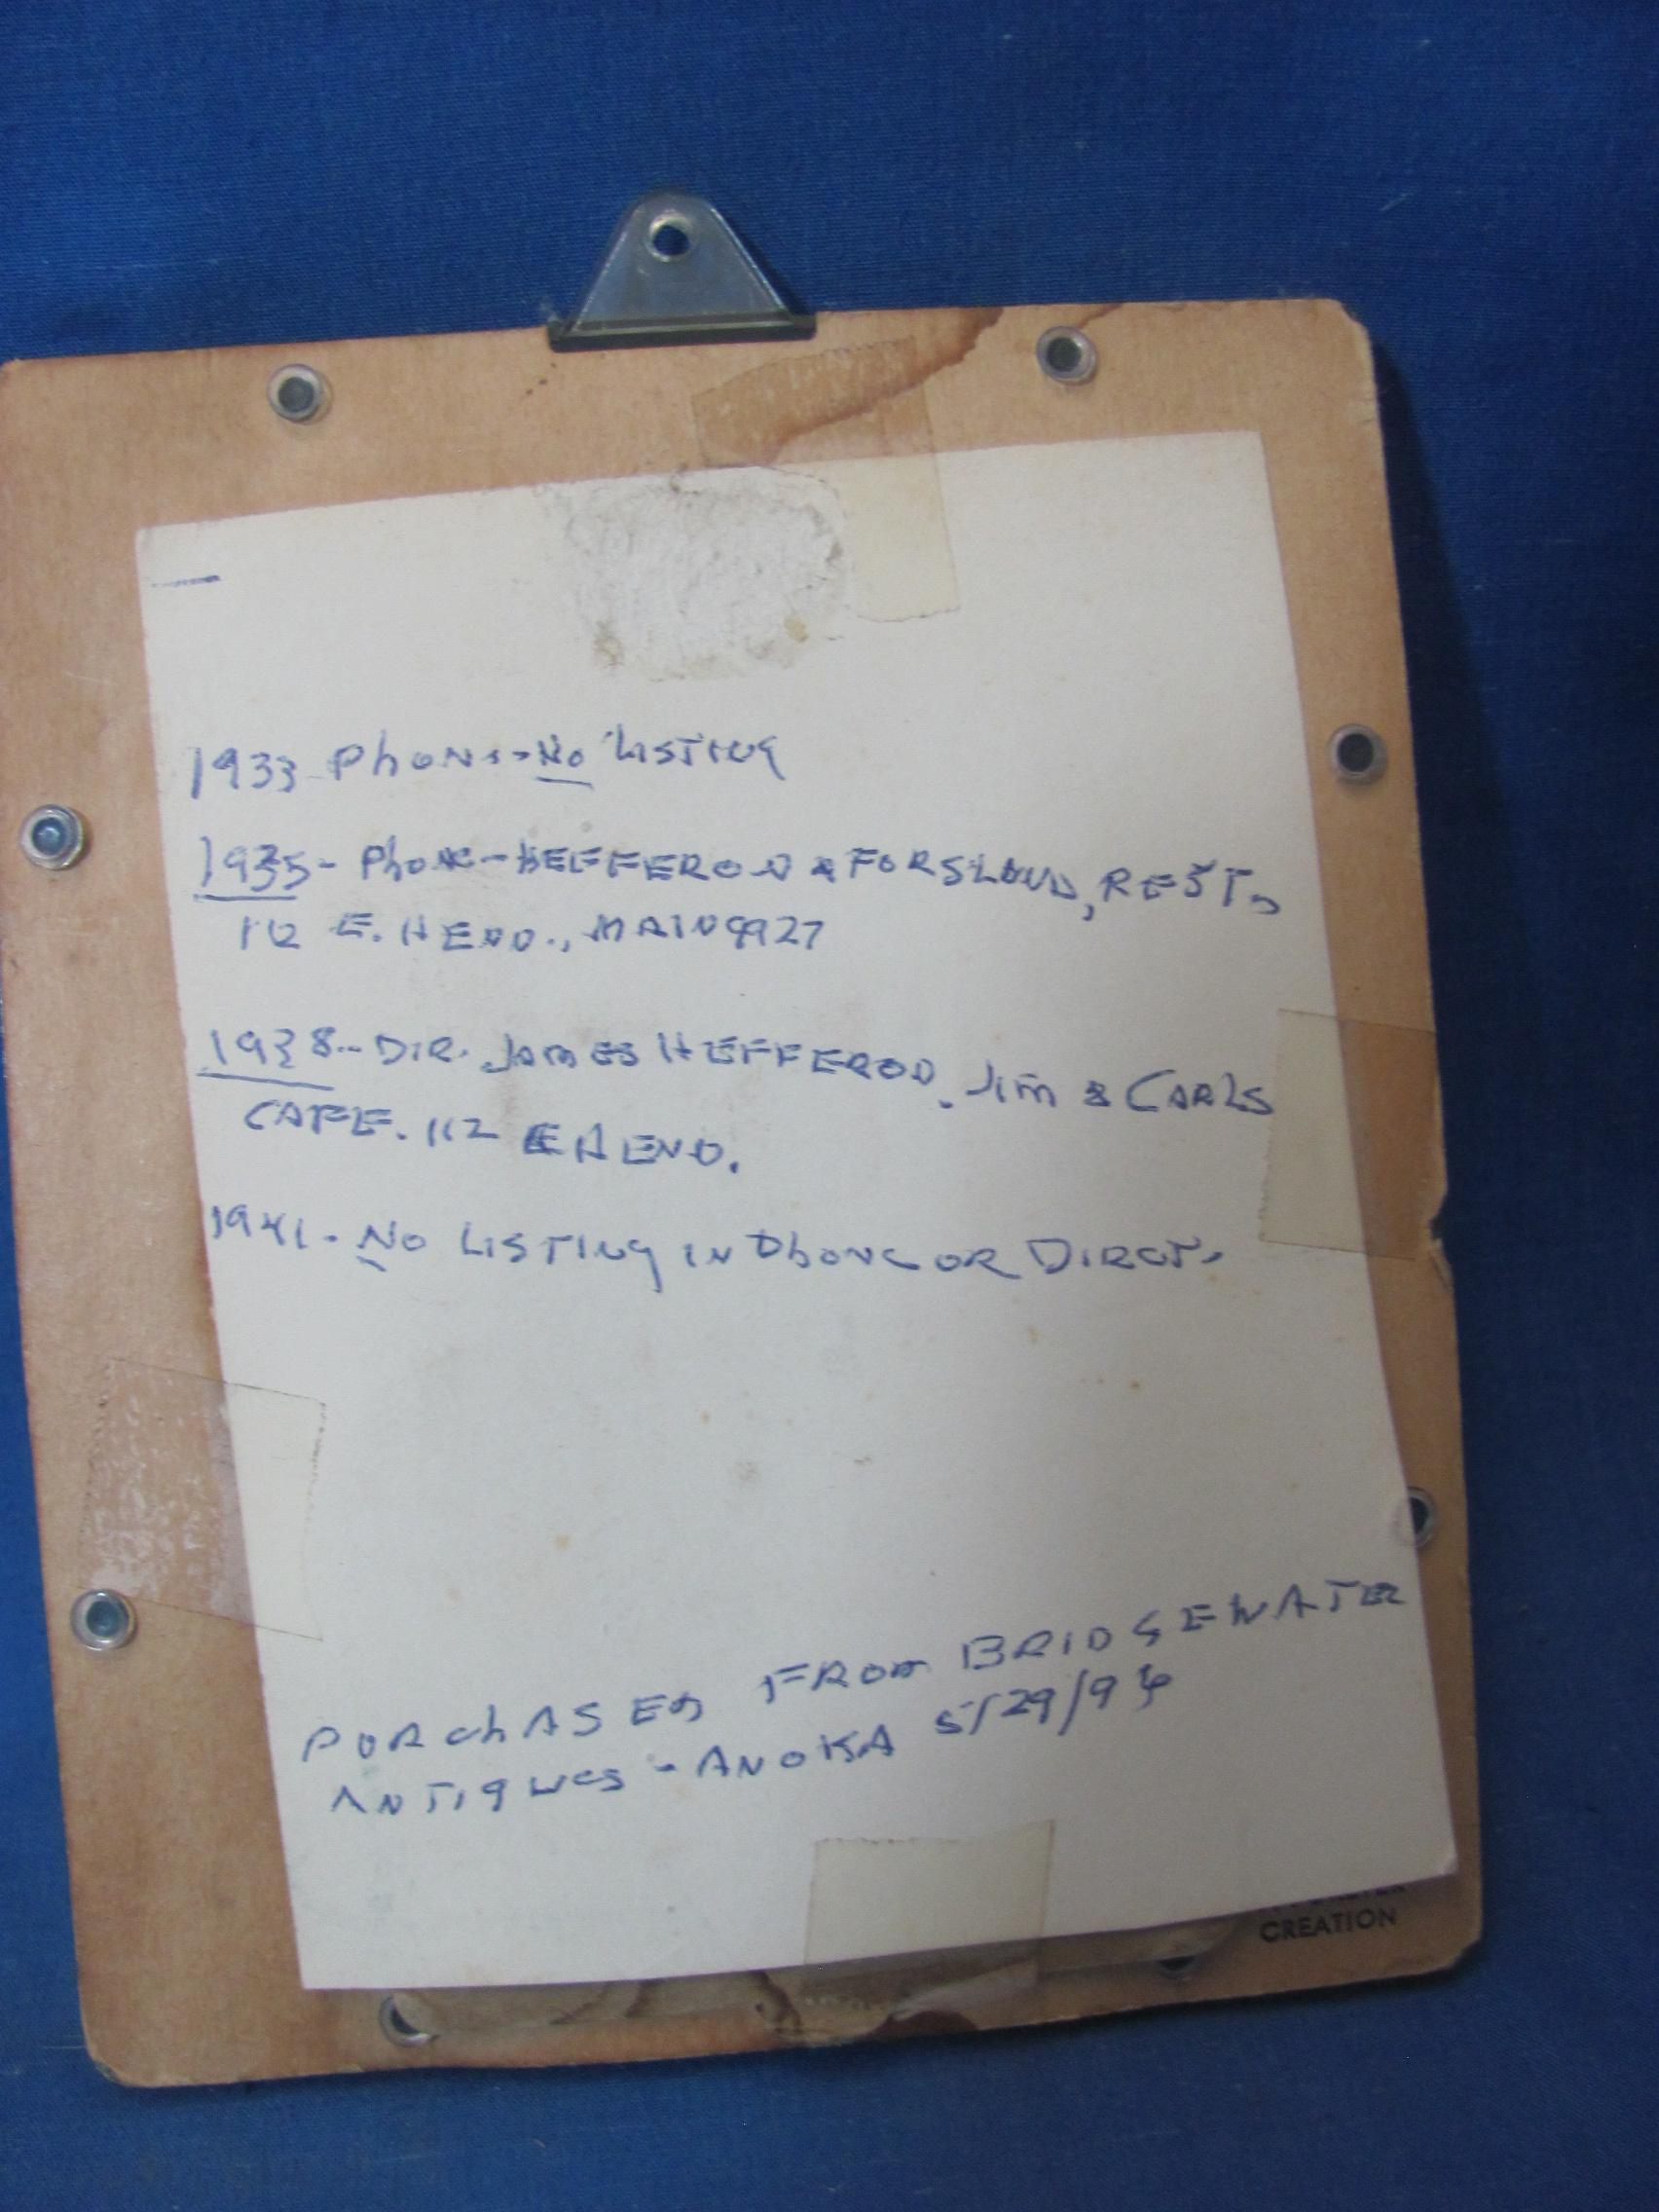 1933 Phone - No Listing
1935 - Phone - HEFFERON & FORSLUND, REST,
112 E. HENN., MAIN 9927
1938 - DIR. JAMES HEFFERON. Jim & CARLS
CAFE. 112 E HENN.
1941 - No LISTING IN PhONE OR DIRECT.
PURChASED FROM BRIDGEWATER
ANTIQUES - ANOKA 5/29/94
CREATION